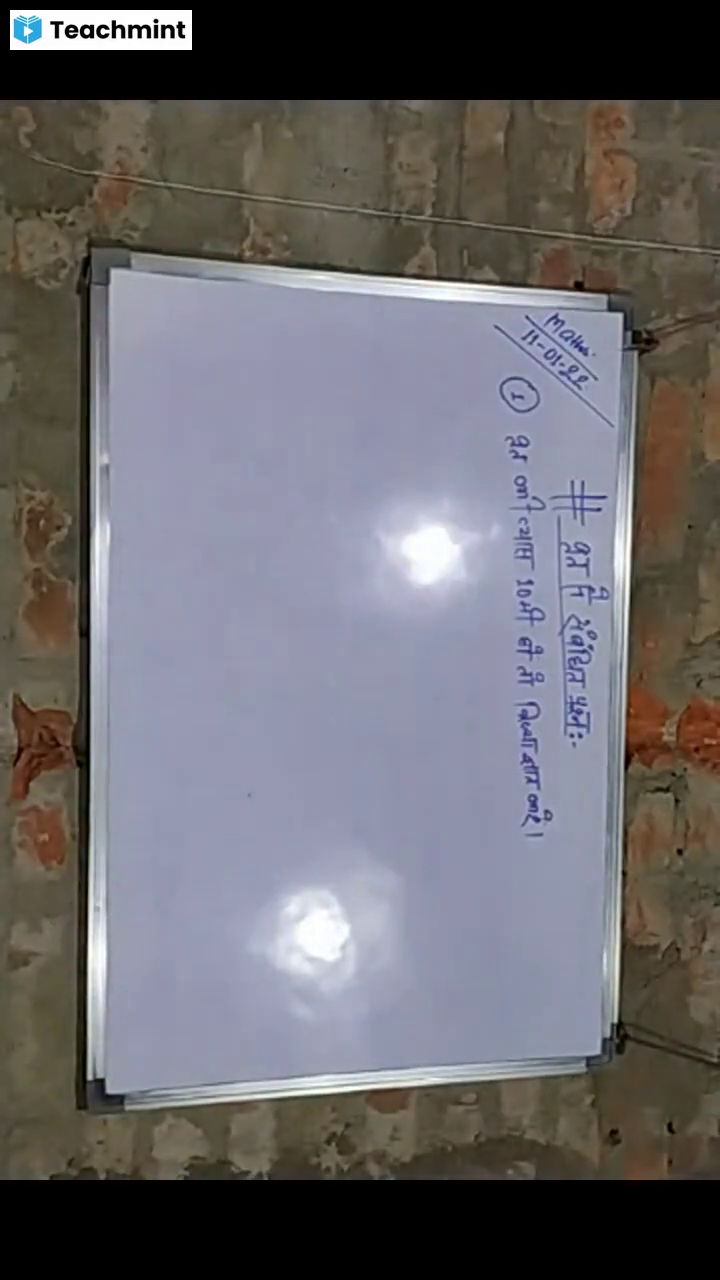 Teachmint
Maths.
11-01-22
# वृत से संबंधित प्रश्न:-
① वृत की व्यास 10मी हो तो त्रिज्या ज्ञात करें।